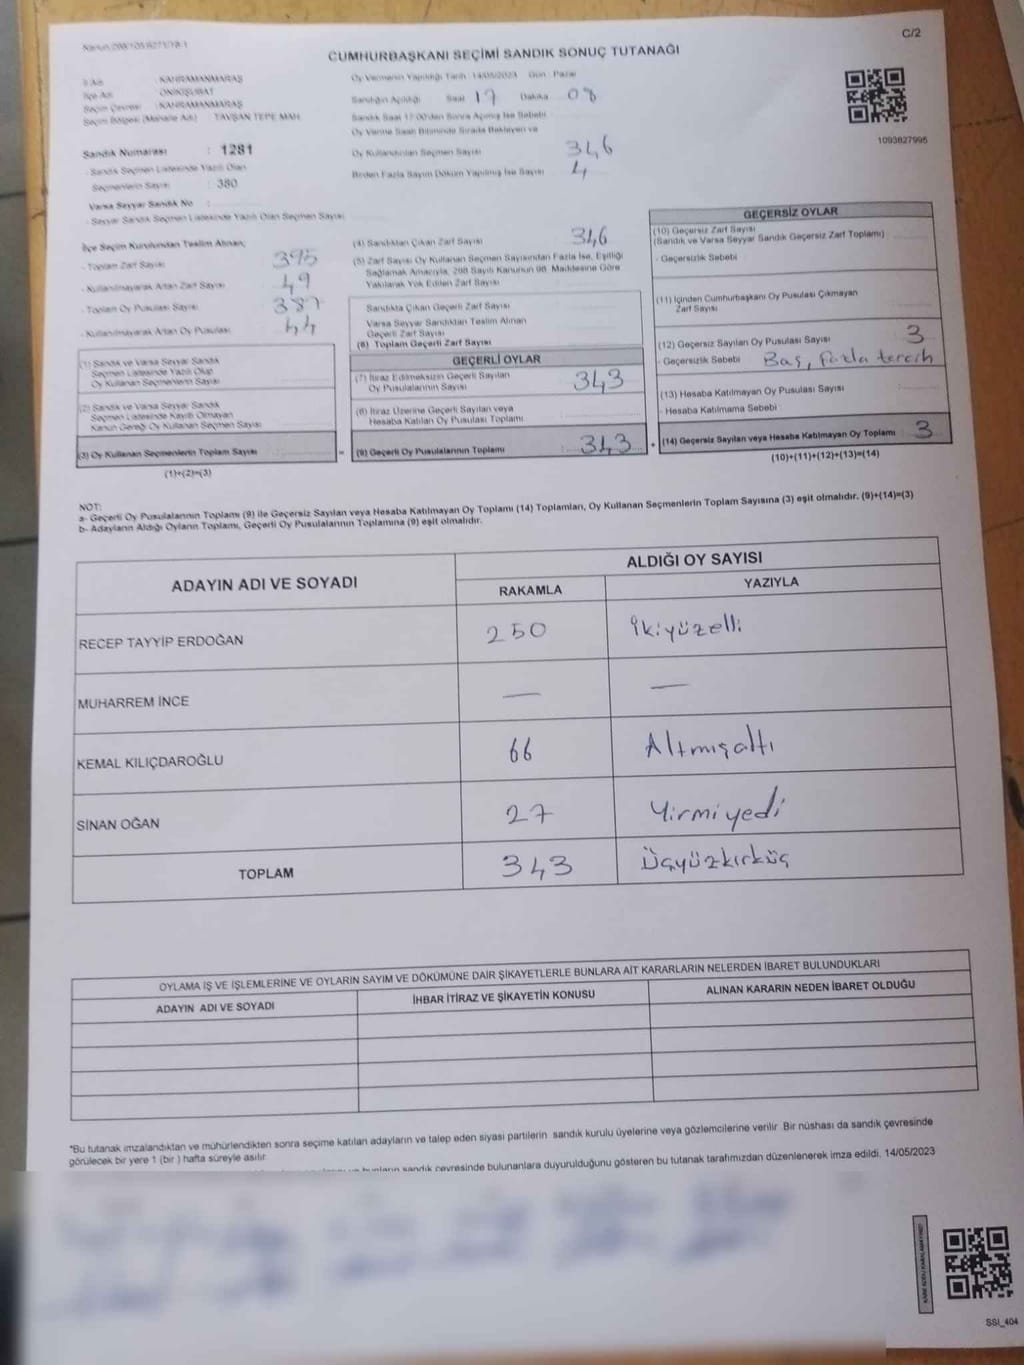 C/2
CUMHURBAŞKANI SEÇİMİ SANDIK SONUÇ TUTANAĞI
İl Adı : KAHRAMANMARAŞ
İlçe Adı : ONİKİŞUBAT
Seçim Çevresi : KAHRAMANMARAŞ
Seçim Bölgesi (Mahalle Adı) : TAVŞAN TEPE MAH.
Oy Vermenin Yapıldığı Tarih : 14/05/2023 Gün : Pazar
Sandığın Açıldığı Saat 17 Dakika 08
Sandık Saat 17:00'den Sonra Açılmış İse Sebebi
Oy Verme Saati Bitiminde Sırada Bekleyen ve
Oy Kullandırılan Seçmen Sayısı 346
Birden Fazla Sayım Döküm Yapılmış İse Sayısı 4
1093827995
Sandık Numarası : 1281
- Sandık Seçmen Listesinde Yazılı Olan
Seçmenlerin Sayısı : 380
Varsa Seyyar Sandık No :
- Seyyar Sandık Seçmen Listesinde Yazılı Olan Seçmen Sayısı
İlçe Seçim Kurulundan Teslim Alınan;
- Toplam Zarf Sayısı 395
- Kullanılmayarak Artan Zarf Sayısı 49
- Toplam Oy Pusulası Sayısı 387
- Kullanılmayarak Artan Oy Pusulası 44
(1) Sandık ve Varsa Seyyar Sandık
Seçmen Listesinde Yazılı Olup
Oy Kullanan Seçmenlerin Sayısı
(2) Sandık ve Varsa Seyyar Sandık
Seçmen Listesinde Kayıtlı Olmayan
Kanun Gereği Oy Kullanan Seçmen Sayısı
(3) Oy Kullanan Seçmenlerin Toplam Sayısı
(1)+(2)=(3)
(4) Sandıktan Çıkan Zarf Sayısı 346
(5) Zarf Sayısı Oy Kullanan Seçmen Sayısından Fazla İse, Eşitliği
Sağlamak Amacıyla, 298 Sayılı Kanunun 98. Maddesine Göre
Yakılarak Yok Edilen Zarf Sayısı
Sandıkta Çıkan Geçerli Zarf Sayısı
Varsa Seyyar Sandıktan Teslim Alınan
Geçerli Zarf Sayısı
(6) Toplam Geçerli Zarf Sayısı
GEÇERLİ OYLAR
(7) İtiraz Edilmeksizin Geçerli Sayılan
Oy Pusulalarının Sayısı 343
(8) İtiraz Üzerine Geçerli Sayılan veya
Hesaba Katılan Oy Pusulası Toplamı
(9) Geçerli Oy Pusulalarının Toplamı : 343
GEÇERSİZ OYLAR
(10) Geçersiz Zarf Sayısı
(Sandık ve Varsa Seyyar Sandık Geçersiz Zarf Toplamı)
- Geçersizlik Sebebi
(11) İçinden Cumhurbaşkanı Oy Pusulası Çıkmayan
Zarf Sayısı
(12) Geçersiz Sayılan Oy Pusulası Sayısı 3
- Geçersizlik Sebebi Boş, Fazla tercih
(13) Hesaba Katılmayan Oy Pusulası Sayısı
- Hesaba Katılmama Sebebi
(14) Geçersiz Sayılan veya Hesaba Katılmayan Oy Toplamı : 3
(10)+(11)+(12)+(13)=(14)
NOT:
a- Geçerli Oy Pusulalarının Toplamı (9) ile Geçersiz Sayılan veya Hesaba Katılmayan Oy Toplamı (14) Toplamları, Oy Kullanan Seçmenlerin Toplam Sayısına (3) eşit olmalıdır. (9)+(14)=(3)
b- Adayların Aldığı Oyların Toplamı, Geçerli Oy Pusulalarının Toplamına (9) eşit olmalıdır.
ADAYIN ADI VE SOYADI
ALDIĞI OY SAYISI
RAKAMLA YAZIYLA
RECEP TAYYİP ERDOĞAN 250 İkiyüzelli
MUHARREM İNCE — —
KEMAL KILIÇDAROĞLU 66 Altmışaltı
SİNAN OĞAN 27 Yirmiyedi
TOPLAM 343 Üçyüzkırküç
OYLAMA İŞ VE İŞLEMLERİNE VE OYLARIN SAYIM VE DÖKÜMÜNE DAİR ŞİKAYETLERLE BUNLARA AİT KARARLARIN NELERDEN İBARET BULUNDUKLARI
ADAYIN ADI VE SOYADI İHBAR İTİRAZ VE ŞİKAYETİN KONUSU ALINAN KARARIN NEDEN İBARET OLDUĞU
*Bu tutanak imzalandıktan ve mühürlendikten sonra seçime katılan adayların ve talep eden siyasi partilerin sandık kurulu üyelerine veya gözlemcilerine verilir. Bir nüshası da sandık çevresinde
görülecek bir yere 1 (bir ) hafta süreyle asılır.
bunların sandık çevresinde bulunanlara duyurulduğunu gösteren bu tutanak tarafımızdan düzenlenerek imza edildi. 14/05/2023
SSI_404